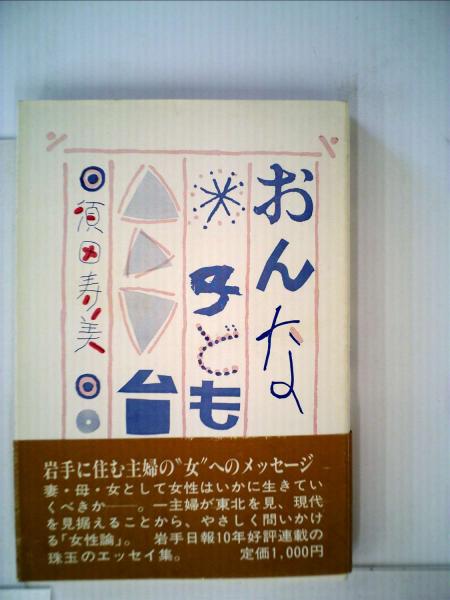 おんな
子ども
台
須田寿美
岩手に住む主婦の〝女〟へのメッセージ
妻・母・女として女性はいかに生きてい
くべきか――。一主婦が東北を見、現代
を見据えることから、やさしく問いかけ
る「女性論」。 岩手日報10年好評連載の
珠玉のエッセイ集。 定価1,000円